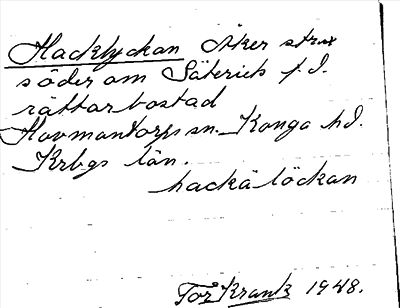 Hacklyckan Åker strax
söder om Säteriets f.d.
rättarbostad
Hovmantorps sn. Konga hd.
Krbgs län.
hackä löckan
Tor Krank 1948.